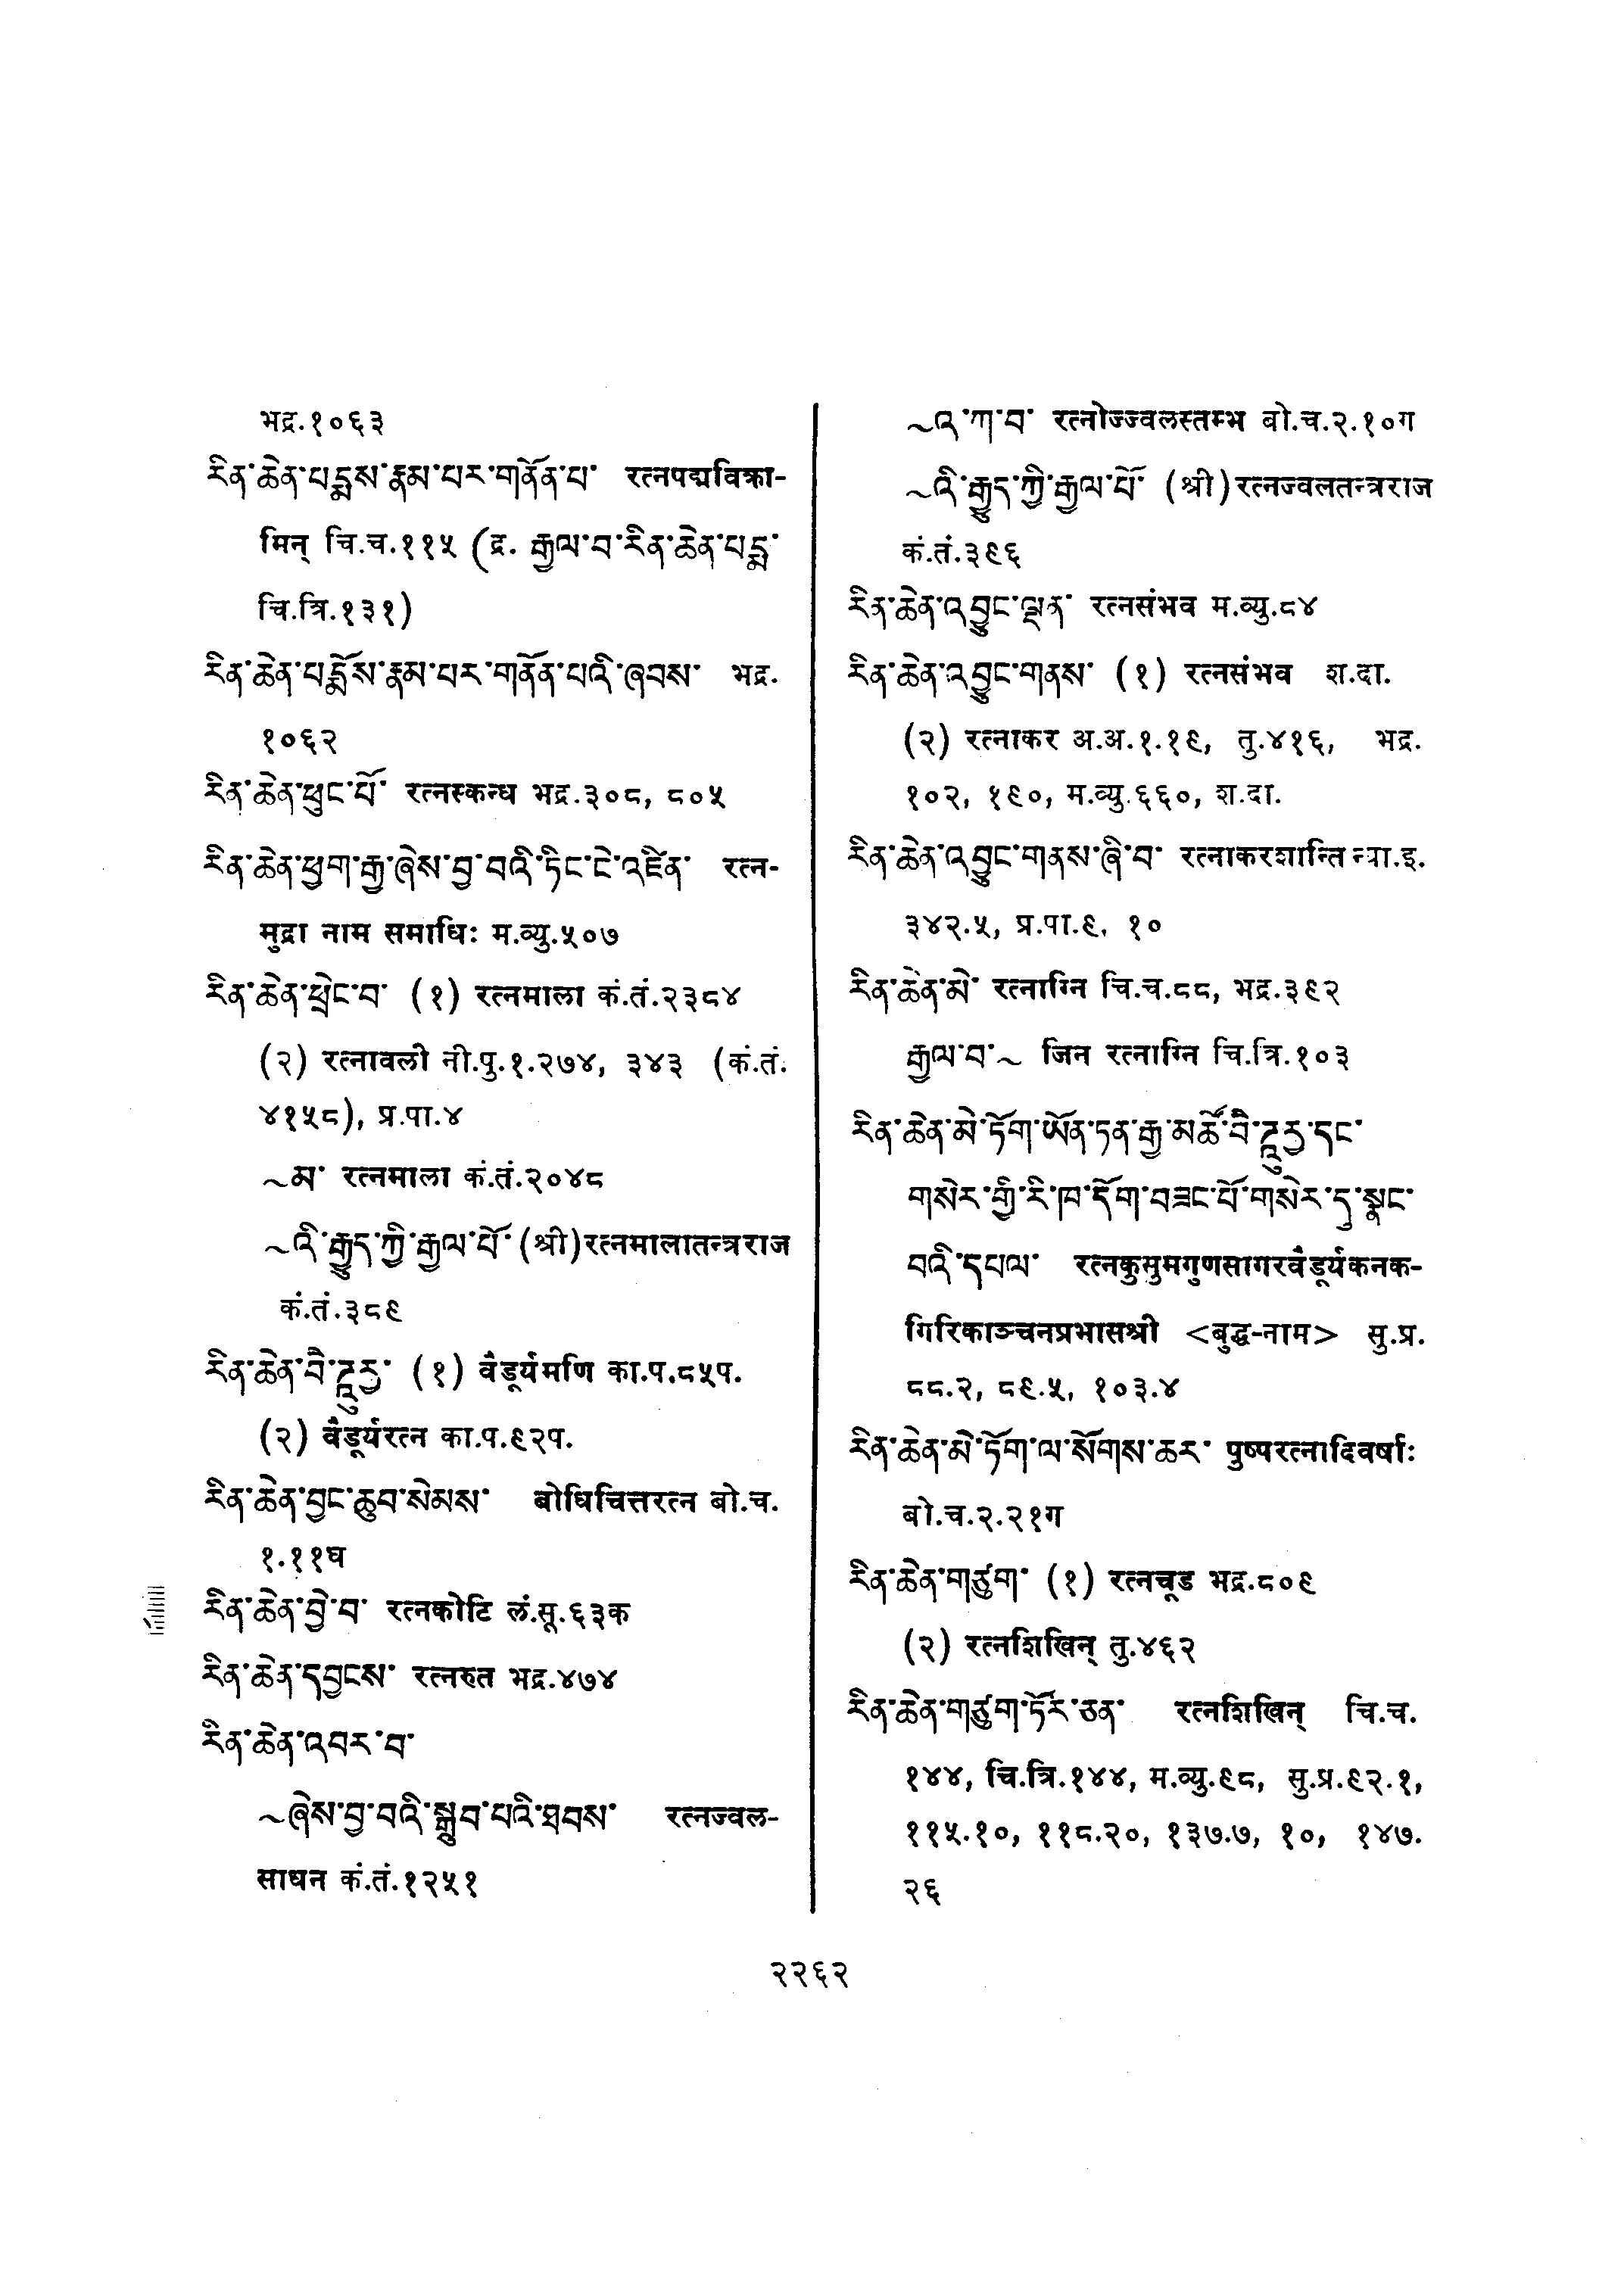 भद्र.१०६३
རིན་ཆེན་པདྨས་རྣམ་པར་གནོན་པ་ रत्नपद्मविक्रा-
मिन् चि.च.११५ (द्र. རྒྱལ་བ་རིན་ཆེན་པདྨ་
चि.त्रि.१३१)
རིན་ཆེན་པདྨོས་རྣམ་པར་གནོན་པའི་ཞབས་ भद्र.
१०६२
རིན་ཆེན་ཕུང་པོ་ रत्नस्कन्ध भद्र.३०८, ८०५
རིན་ཆེན་ཕྱག་རྒྱ་ཞེས་བྱ་བའི་ཏིང་ངེ་འཛིན་ रत्न-
मुद्रा नाम समाधिः म.व्यु.५०७
རིན་ཆེན་ཕྲེང་བ་ (१) रत्नमाला कं.तं.२३८४
(२) रत्नावली नी.पु.१.२७४, ३४३ (कं.तं.
४१५८), प्र.पा.४
~མ་ रत्नमाला कं.तं.२०४८
~འི་རྒྱུད་ཀྱི་རྒྱལ་པོ་ (श्री)रत्नमालातन्त्रराज
कं.तं.३८९
རིན་ཆེན་བཻ་ཌཱུརྻ་ (१) वैडूर्यमणि का.प.८५प.
(२) वैडूर्यरत्न का.प.९२प.
རིན་ཆེན་བྱང་ཆུབ་སེམས་ बोधिचित्तरत्न बो.च.
१.११घ
རིན་ཆེན་བྱེ་བ་ रत्नकोटि लं.सू.६३क
རིན་ཆེན་དབྱངས་ रत्नरुत भद्र.४७४
རིན་ཆེན་འབར་བ་
~ཞེས་བྱ་བའི་སྒྲུབ་པའི་ཐབས་ रत्नज्वल-
साधन कं.तं.१२५१
~འ་ཀ་བ་ रत्नोज्ज्वलस्तम्भ बो.च.२.१०ग
~འི་རྒྱུད་ཀྱི་རྒྱལ་པོ་ (श्री)रत्नज्वलतन्त्रराज
कं.तं.३९६
རིན་ཆེན་འབྱུང་ལྡན་ रत्नसंभव म.व्यु.८४
རིན་ཆེན་འབྱུང་གནས་ (१) रत्नसंभव श.दा.
(२) रत्नाकर अ.अ.१.१९, तु.४१६, भद्र.
१०२, १९०, म.व्यु.६६०, श.दा.
རིན་ཆེན་འབྱུང་གནས་ཞི་བ་ रत्नाकरशान्ति न्या.इ.
३४२.५, प्र.पा.९, १०
རིན་ཆེན་མེ་ रत्नाग्नि चि.च.८८, भद्र.३९२
རྒྱལ་བ་~ जिन रत्नाग्नि चि.त्रि.१०३
རིན་ཆེན་མེ་ཏོག་ཡོན་ཏན་རྒྱ་མཚོ་བཻ་ཌཱུརྻ་དང་
གསེར་གྱི་རི་ཁ་དོག་བཟང་པོ་གསེར་དུ་སྣང་
བའི་དཔལ་ रत्नकुसुमगुणसागरवैडूर्यकनक-
गिरिकाञ्चनप्रभासश्री <बुद्ध-नाम> सु.प्र.
८८.२, ८९.५, १०३.४
རིན་ཆེན་མེ་ཏོག་ལ་སོགས་ཆར་ पुष्परत्नादिवर्षाः
बो.च.२.२१ग
རིན་ཆེན་གཙུག་ (१) रत्नचूड भद्र.८०९
(२) रत्नशिखिन् तु.४६२
རིན་ཆེན་གཙུག་ཏོར་ཅན་ रत्नशिखिन् चि.च.
१४४, चि.त्रि.१४४, म.व्यु.९८, सु.प्र.९२.१,
११५.१०, ११८.२०, १३७.७, १०, १४७.
२६
२२६२